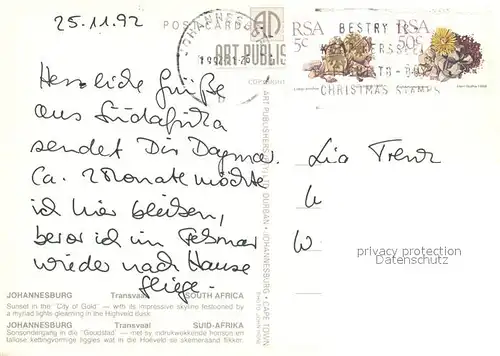 25.11.92
POSTCARD
JOHANNESBURG
ART PUBLISHERS
COPYRIGHT
RSA
5c
RSA
50c
BESTRY
CHRISTMAS STAMPS
Herzliche Grüße
aus Südafrika
sendet Dir Dagmar.
Ca. 2 Monate möchte
ich hier bleiben,
bevor ich im Februar
wieder nach Hause
fliege.
Lia
privacy protection
VERDENDUNG
JOHANNESBURG Transvaal SOUTH AFRICA
Sunset in the "City of Gold" — with its impressive skyline festooned by
a myriad lights gleaming in the Highveld dusk.
JOHANNESBURG Transvaal SUID-AFRIKA
Sonsondergang in die "Goudstad" — met sy indrukwekkende horison en
tallose kettingvormige liggies wat in die Hoëveld se skemeraand flikker.
ART PUBLISHERS (PTY) LTD DURBAN · JOHANNESBURG · CAPE TOWN